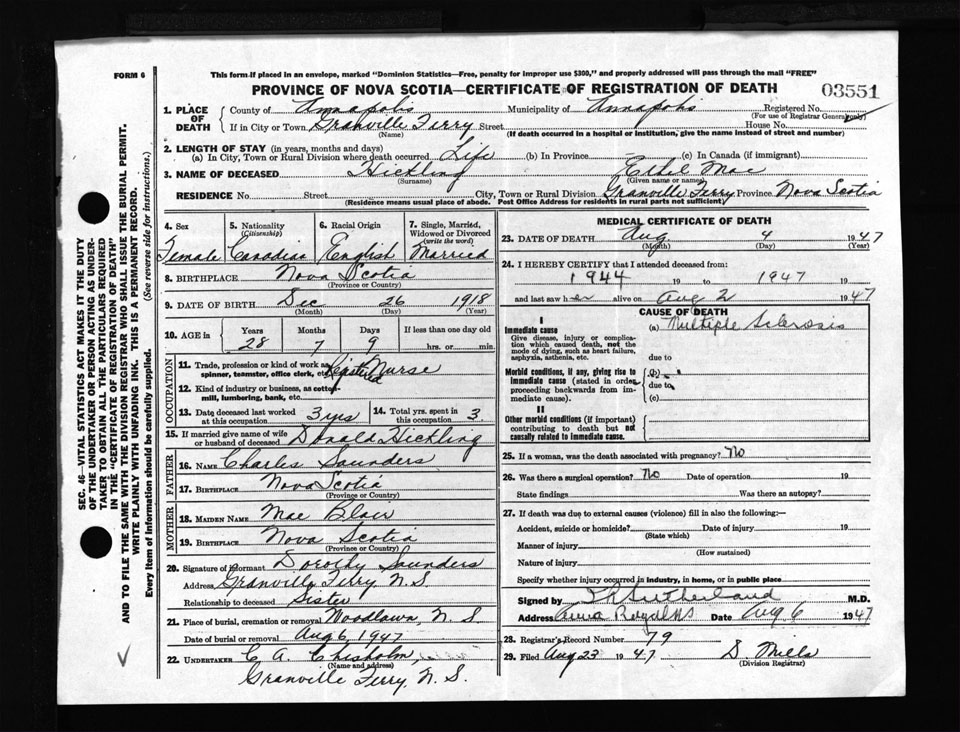 FORM 6
This form if placed in an envelope, marked "Dominion Statistics—Free, penalty for improper use $300," and properly addressed will pass through the mail "FREE"
PROVINCE OF NOVA SCOTIA—CERTIFICATE OF REGISTRATION OF DEATH
03551
1. PLACE OF DEATH County of Annapolis Municipality of Annapolis Registered No.
(For use of Registrar General only)
If in City or Town Granville Ferry Street House No.
(Name) (If death occurred in a hospital or institution, give the name instead of street and number)
2. LENGTH OF STAY (in years, months and days)
(a) In City, Town or Rural Division where death occurred Life (b) In Province (c) In Canada (if immigrant)
3. NAME OF DECEASED Hickling Ethel Mae
(Surname) (Given name or names)
RESIDENCE No. Street City, Town or Rural Division Granville Ferry Province Nova Scotia
(Residence means usual place of abode. Post Office Address for residents in rural parts not sufficient)
4. Sex 5. Nationality (Citizenship) 6. Racial Origin 7. Single, Married, Widowed or Divorced (write the word)
Female Canadian English Married
8. BIRTHPLACE Nova Scotia
(Province or Country)
9. DATE OF BIRTH Dec 26 1918
(Month) (Day) (Year)
10. AGE in Years Months Days If less than one day old
28 7 9 hrs. or min.
OCCUPATION
11. Trade, profession or kind of work as spinner, teamster, office clerk, etc. Registered Nurse
12. Kind of industry or business, as cotton mill, lumbering, bank, etc.
13. Date deceased last worked at this occupation 3 yrs 14. Total yrs. spent in this occupation 3.
15. If married give name of wife or husband of deceased Donald Hickling
FATHER
16. NAME Charles Saunders
17. BIRTHPLACE Nova Scotia
(Province or Country)
MOTHER
18. MAIDEN NAME Mae Blair
19. BIRTHPLACE Nova Scotia
(Province or Country)
20. Signature of informant Dorothy Saunders
Address Granville Ferry, N.S
Relationship to deceased Sister
21. Place of burial, cremation or removal Woodlawn, N.S.
Date of burial or removal Aug 6, 1947
22. UNDERTAKER C A. Chisholm,
(Name and address)
Granville Ferry, N.S.
MEDICAL CERTIFICATE OF DEATH
23. DATE OF DEATH Aug. 4 1947
(Month) (Day) (Year)
24. I HEREBY CERTIFY that I attended deceased from:
1944 19 to 1947 19
and last saw her alive on Aug 2 1947
CAUSE OF DEATH
I
Immediate cause (a) Multiple Sclerosis
Give disease, injury or complication which caused death, not the mode of dying, such as heart failure, asphyxia, asthenia, etc.
due to
Morbid conditions, if any, giving rise to immediate cause (stated in order proceeding backwards from immediate cause).
(b)
due to
(c)
II
Other morbid conditions (if important) contributing to death but not causally related to immediate cause.
25. If a woman, was the death associated with pregnancy? No
26. Was there a surgical operation? No Date of operation 19
State findings Was there an autopsy?
27. If death was due to external causes (violence) fill in also the following:—
Accident, suicide or homicide? Date of injury 19
(State which)
Manner of injury
(How sustained)
Nature of injury
Specify whether injury occurred in industry, in home, or in public place
Signed by Sutherland M.D.
Address Anna Royal NS Date Aug 6 1947
28. Registrar's Record Number 79
29. Filed Aug 23 1947 D. Mills
(Division Registrar)
SEC. 46—VITAL STATISTICS ACT MAKES IT THE DUTY
OF THE UNDERTAKER OR PERSON ACTING AS UNDER-
TAKER TO OBTAIN ALL THE PARTICULARS REQUIRED
IN THE "CERTIFICATE OF REGISTRATION OF DEATH"
AND TO FILE THE SAME WITH THE DIVISION REGISTRAR WHO SHALL ISSUE THE BURIAL PERMIT.
WRITE PLAINLY WITH UNFADING INK. THIS IS A PERMANENT RECORD.
Every item of information should be carefully supplied. (See reverse side for instructions.)